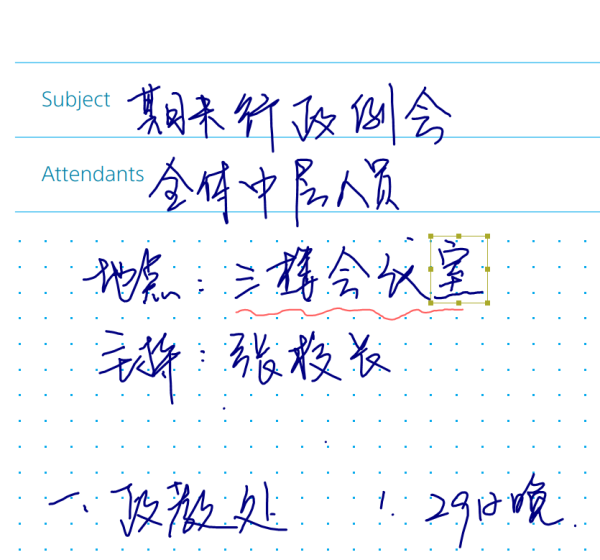 Subject 期末行政例会
Attendants 全体中层人员
地点：三楼会议室
主持：张校长
一、政教处 1. 29日晚